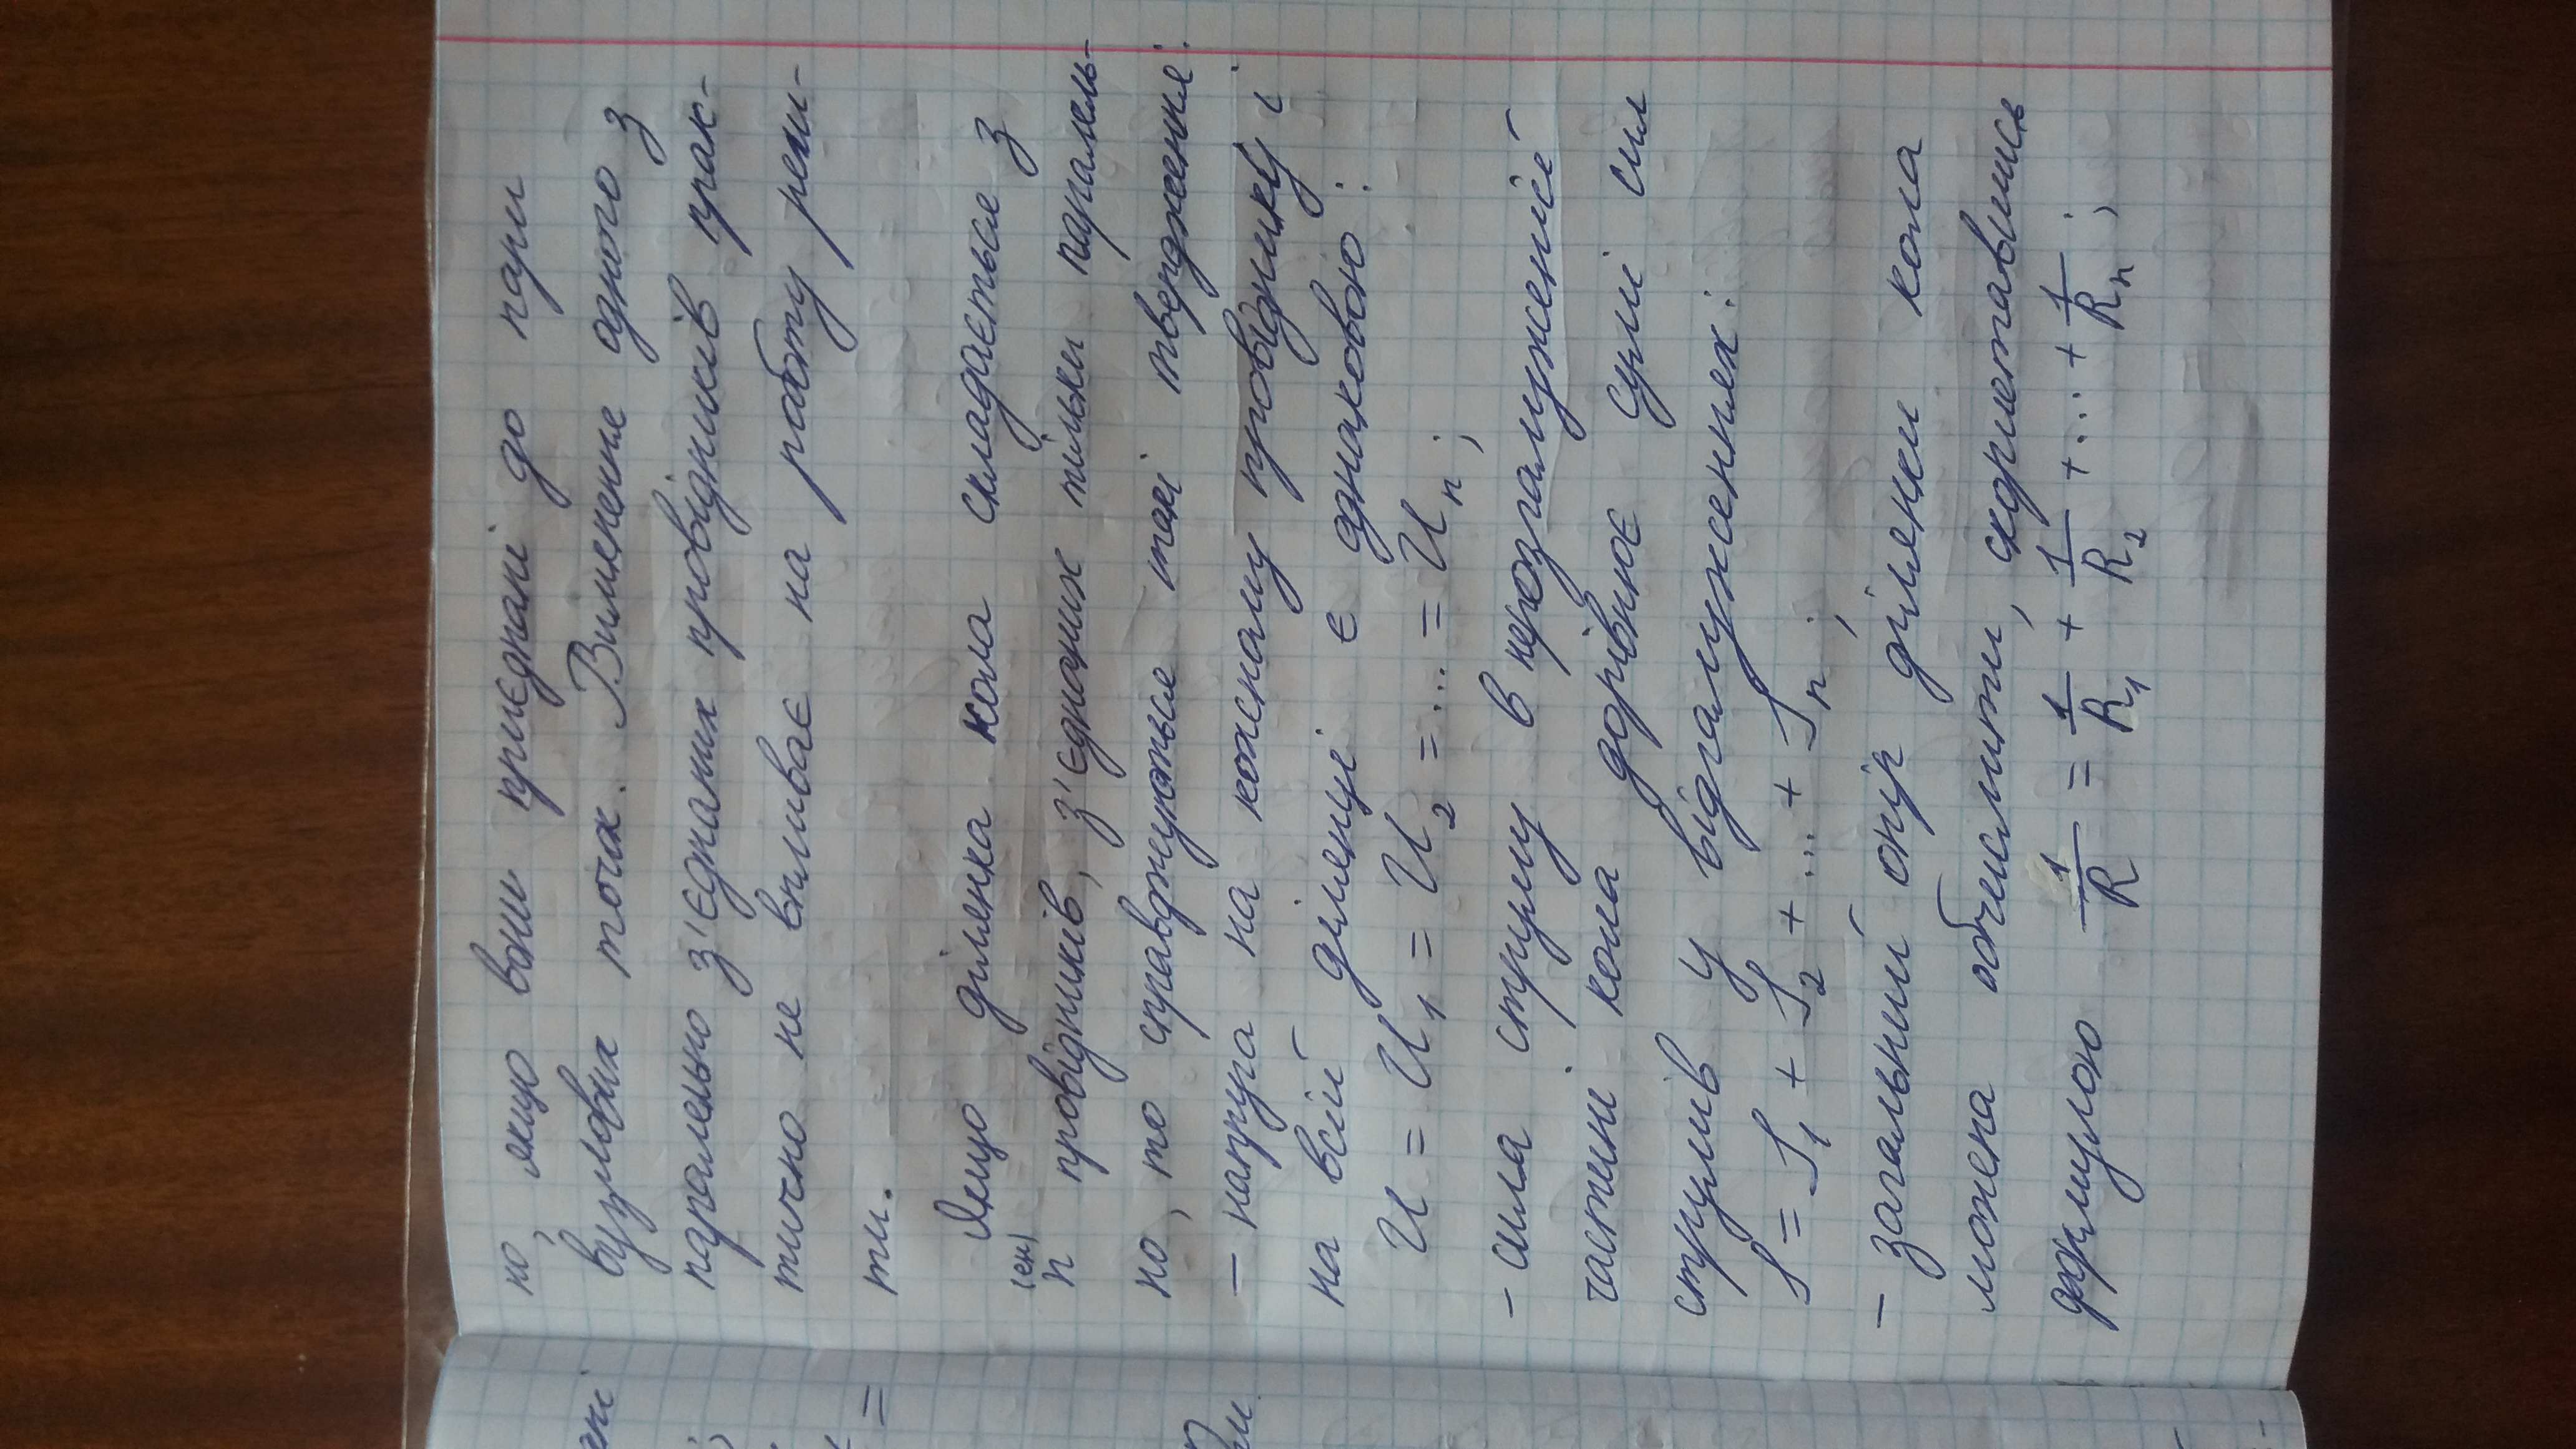 но, якщо вони приєднані до пари
вузлових точок. Вимкнення одного з
паралельно з'єднаних провідників прак-
тично не впливає на роботу реш-
ти.
Якщо ділянка кола складається з
(ен)
n провідників, з'єднаних тільки паралель-
но, то справджуються такі твердження:
- напруга на кожному провіднику і
на всій ділянці є однаковою:
U = U₁ = U₂ = ... = Uₙ;
- сила струму в нерозгалуженій
частині кола дорівнює сумі сил
струмів у відгалуженнях:
I = I₁ + I₂ + ... + Iₙ;
- загальний опір ділянки кола
можна обчислити, скориставшись
формулою 1/R = 1/R₁ + 1/R₂ + ... + 1/Rₙ;
=